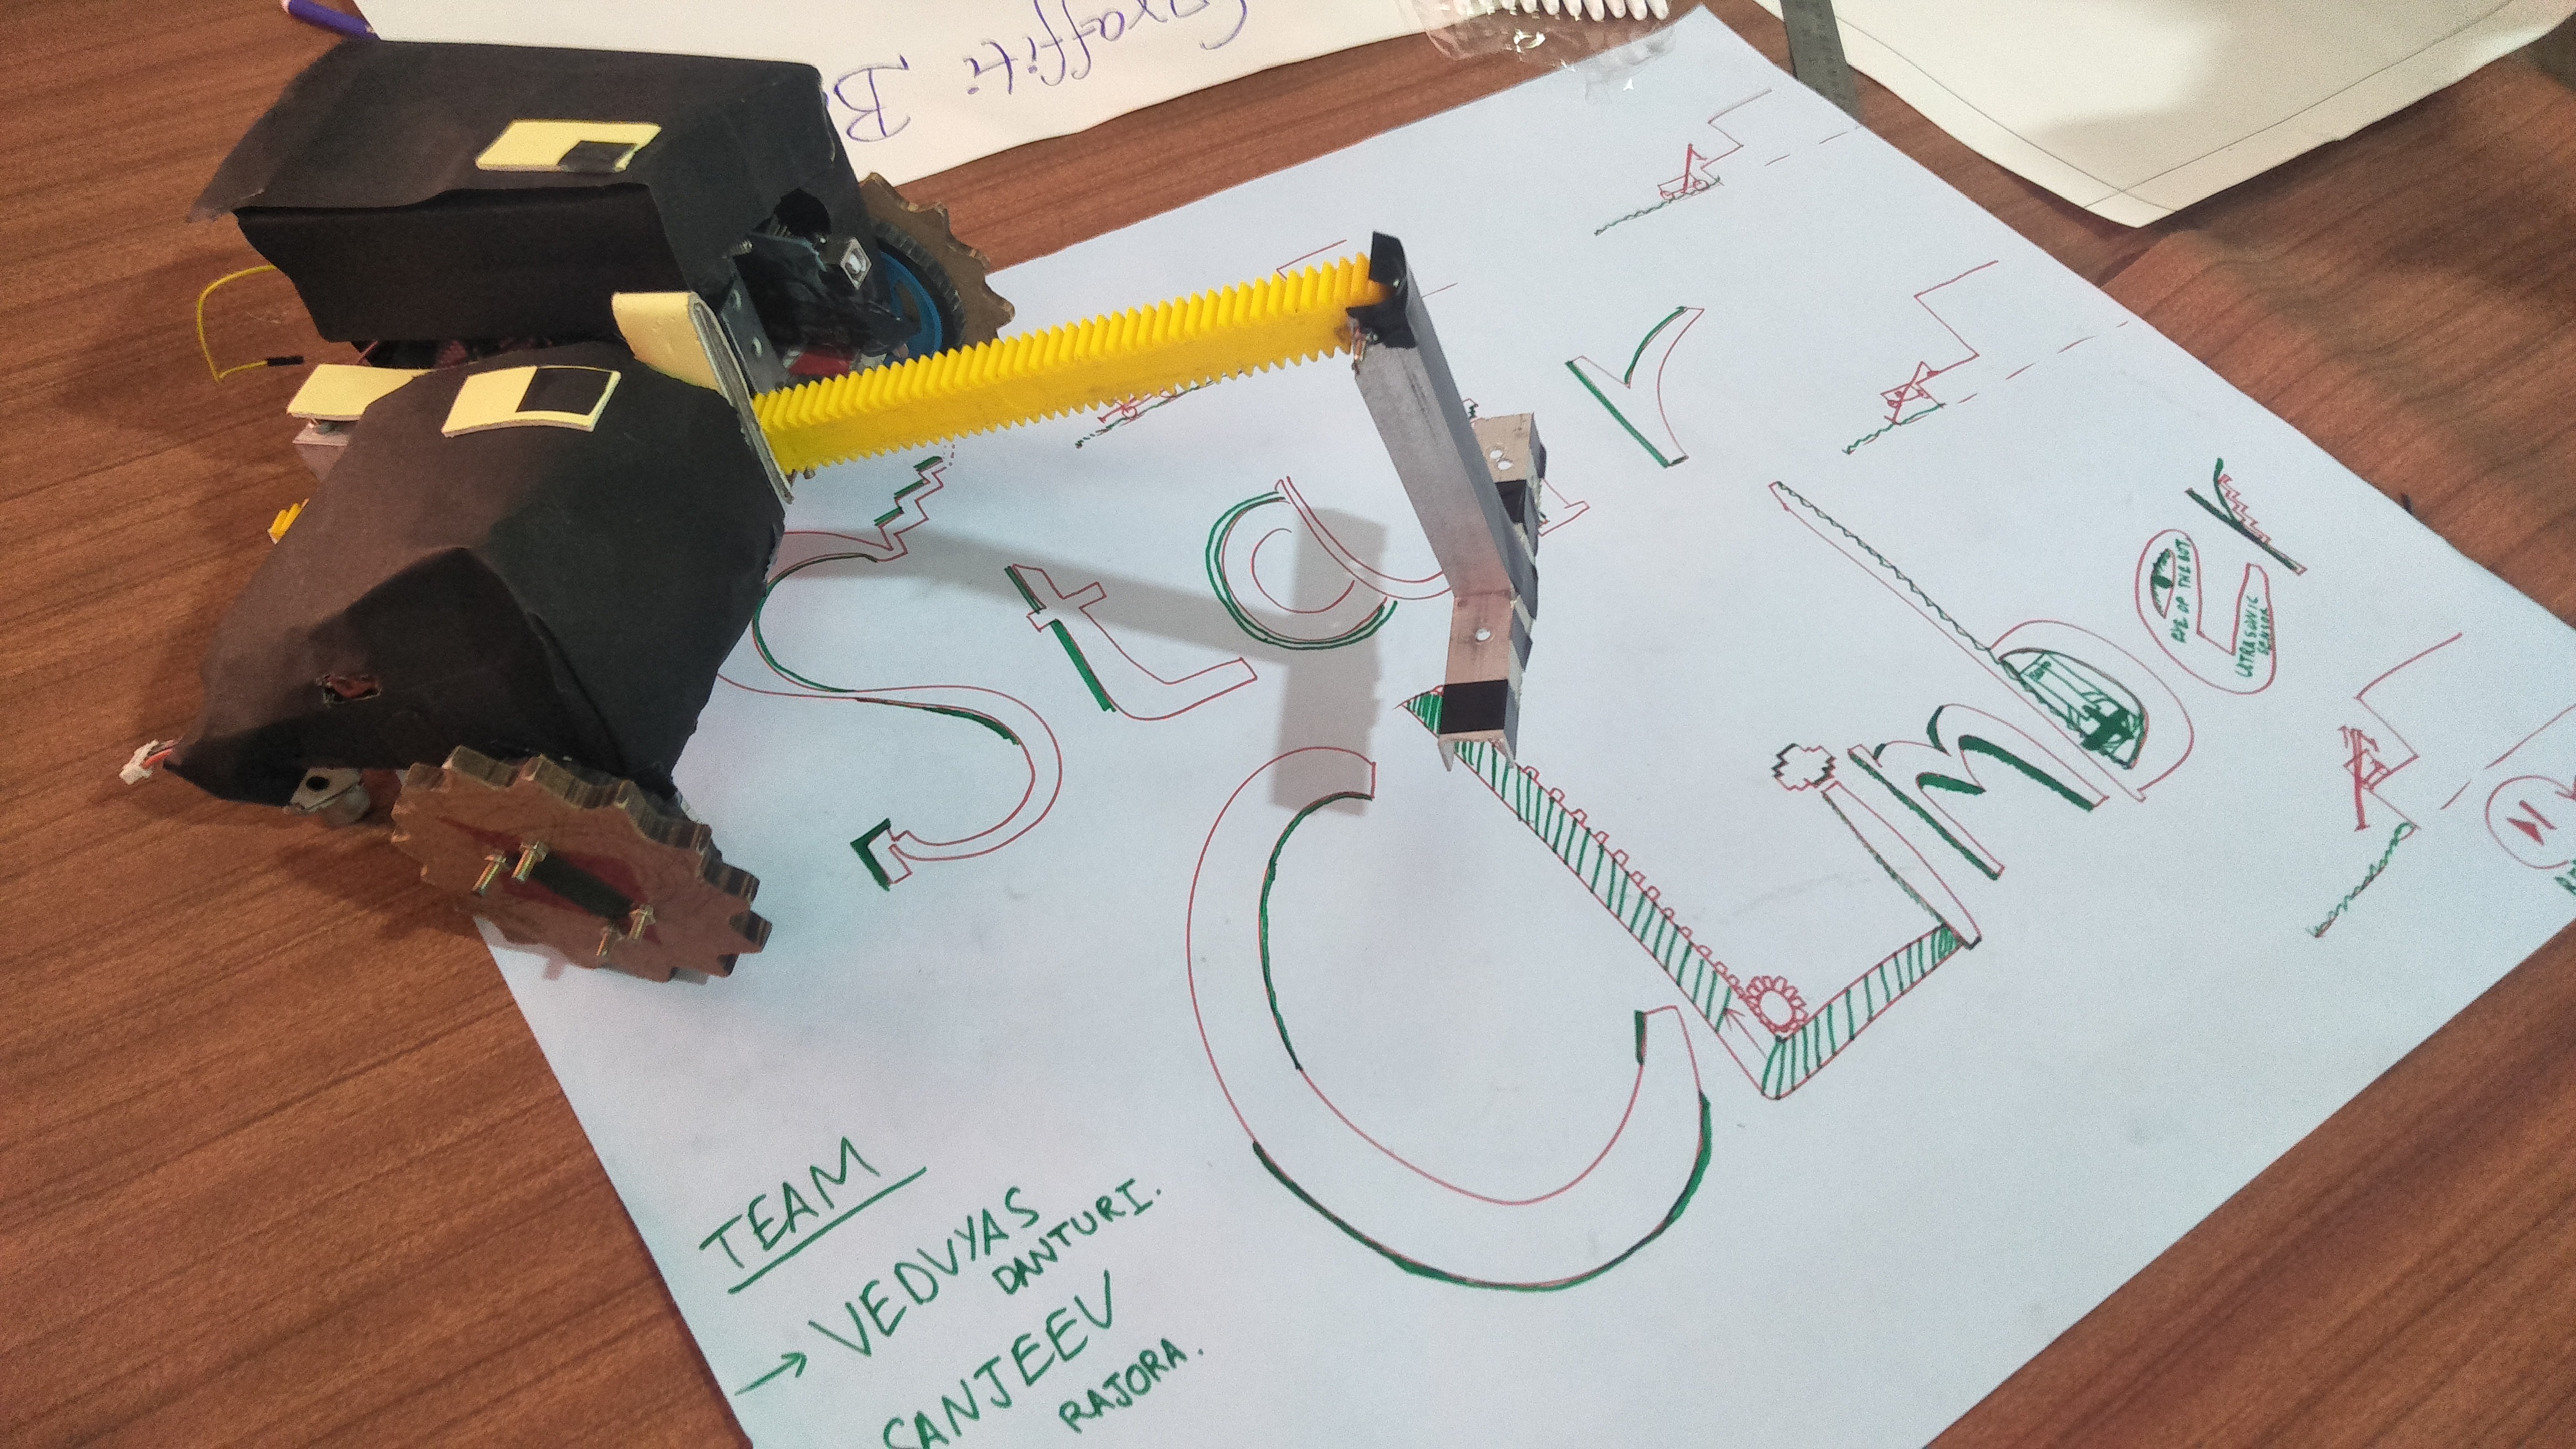 Graffiti B
Stair
CLIMBER
EYE OF THE BOT
ULTRASONIC
SENSOR
TEAM
→ VEDVYAS
DANTURI.
SANJEEV
RAJORA.